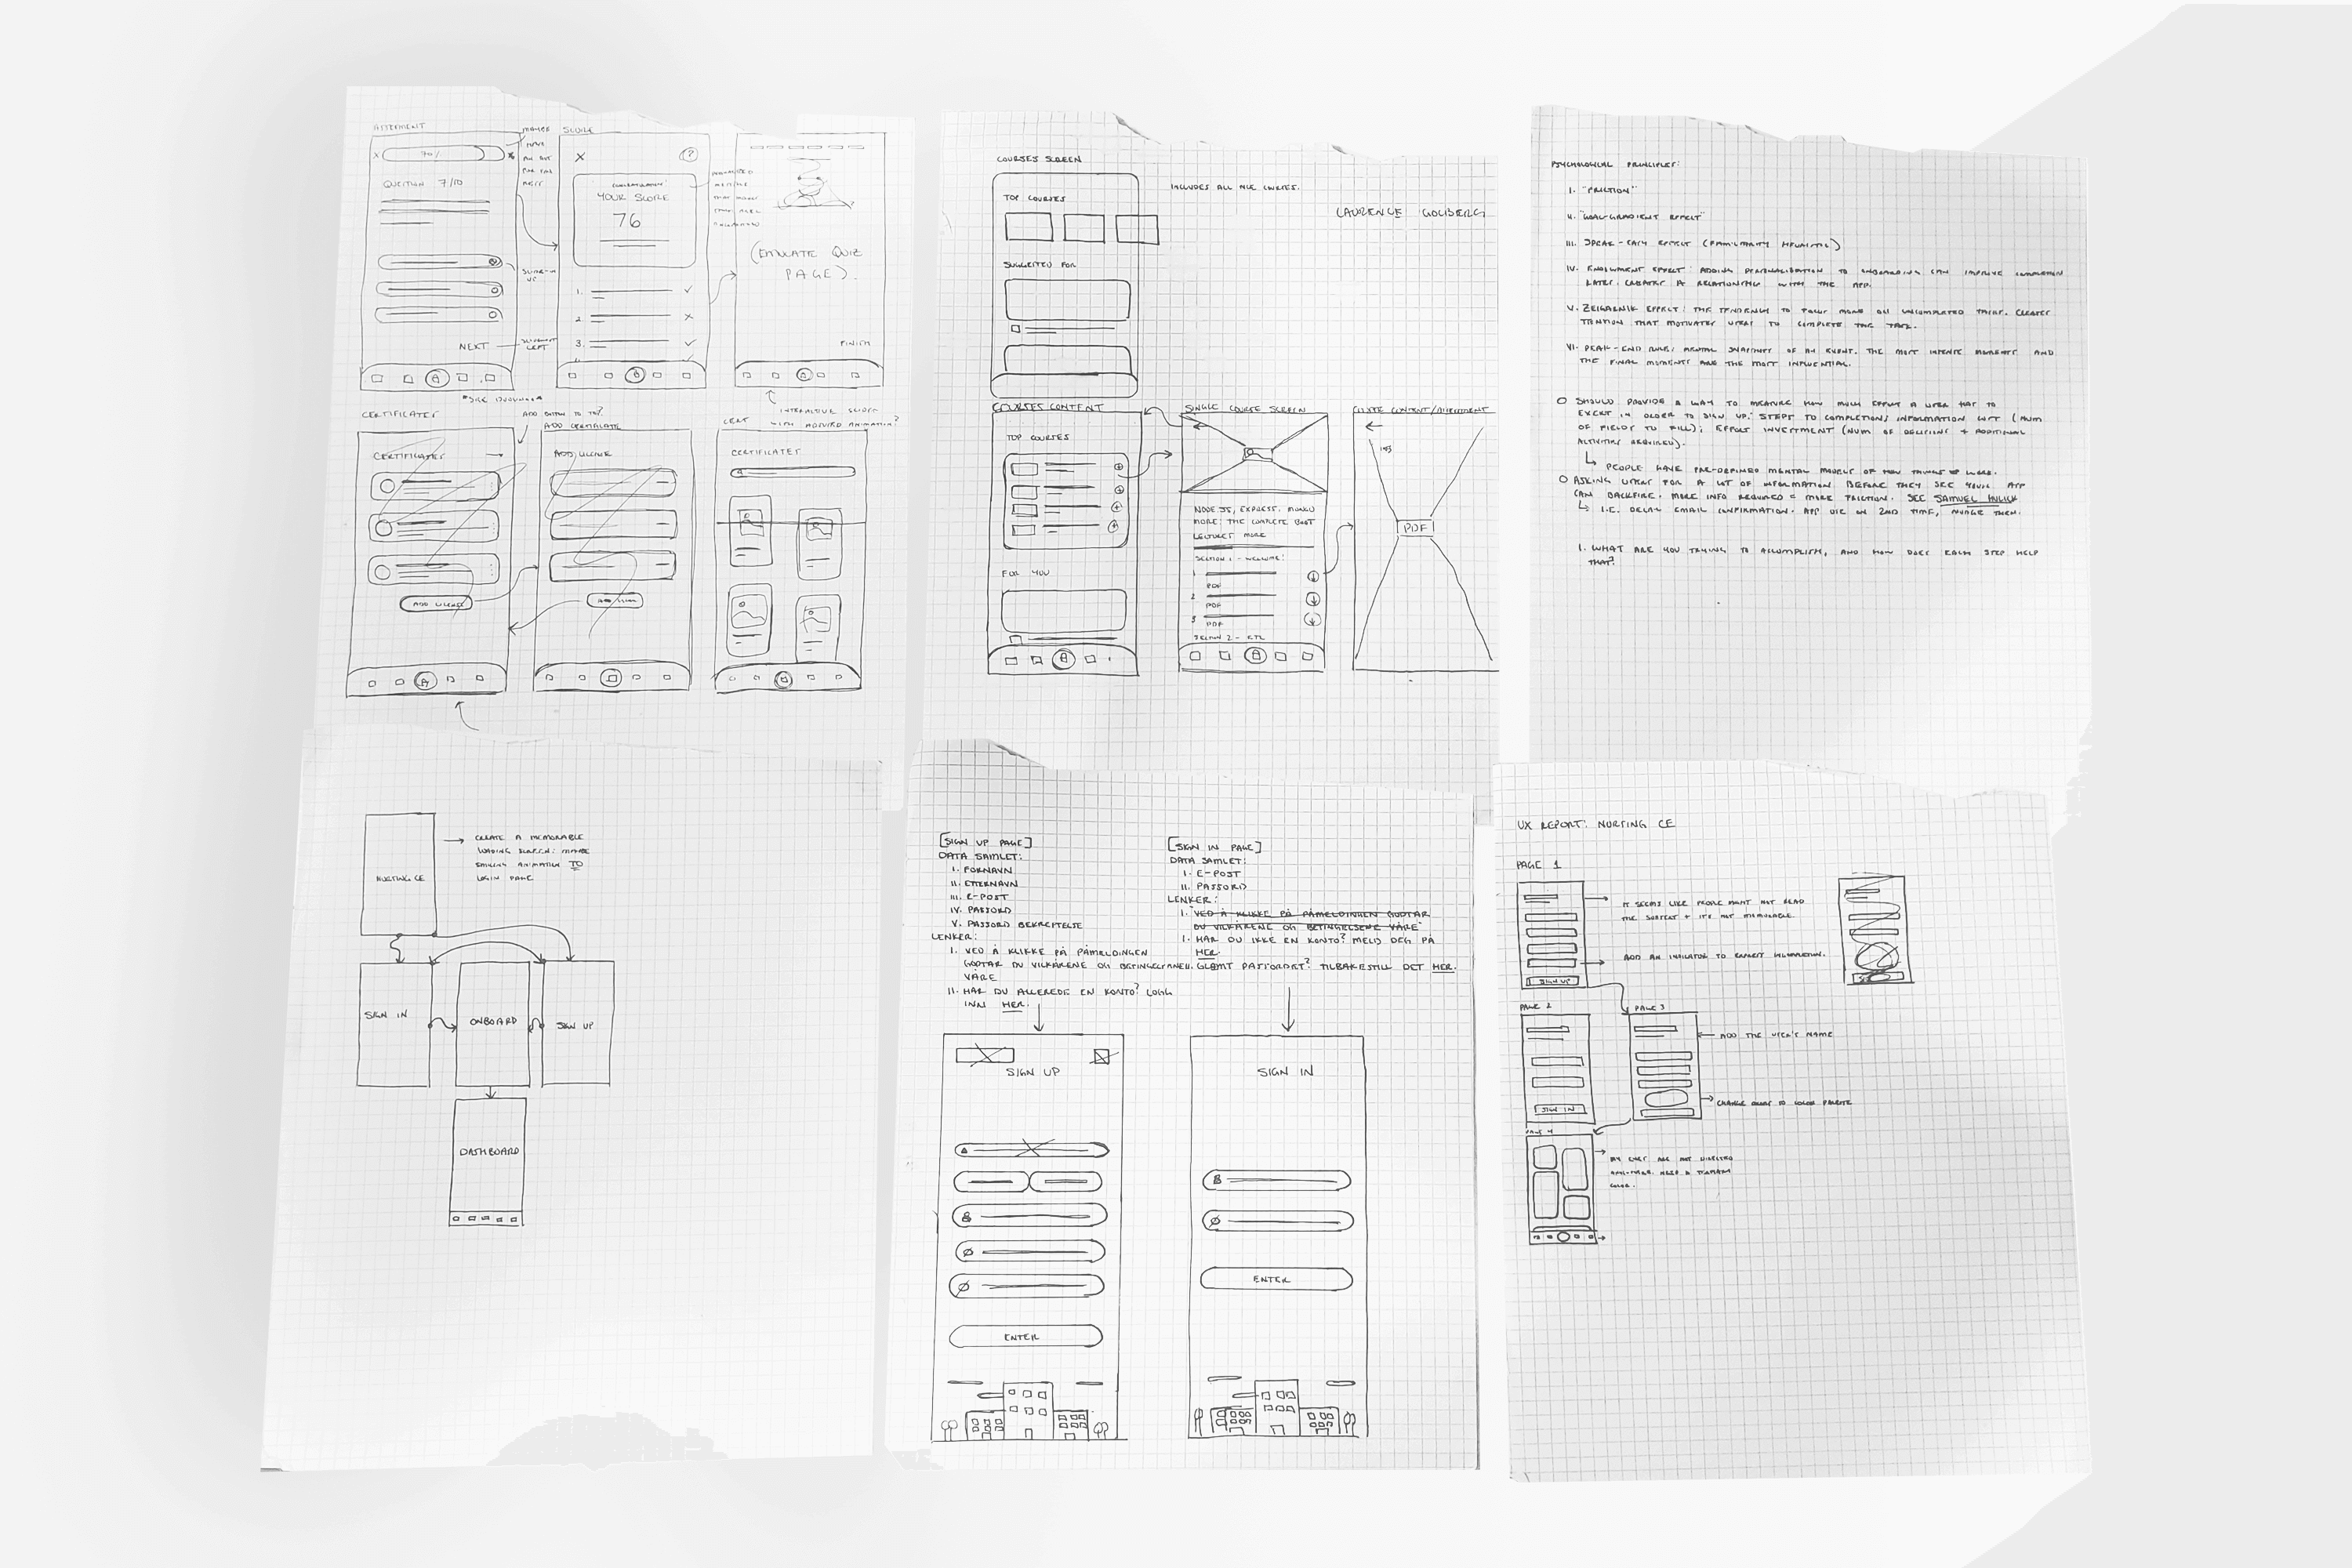 SCORE
70%
QUESTION 7/10
YOUR SCORE
76
1.
2.
3.
NEXT
LEFT
(EMULATE QUIZ
PAGE).
FINISH
CERTIFICATES
ADD BUTTON TO TO?
ADD CERTIFICATE
CERT
CERTIFICATES
ADD LICENSE
CERTIFICATES
ADD LICENSE
COURSES SCREEN
TOP COURSES
SUGGESTED FOR
INCLUDES ALL THE COURSES.
LAURENCE GOLDBERG
COURSES CONTENT
TOP COURSES
FOR YOU
SINGLE COURSE SCREEN
NODE JS, EXPRESS, MONGO
MORE: THE COMPLETE BOOT
LECTURES MORE
SECTION 1 - WELCOME!
1
PDF
2
PDF
3
PDF
SECTION 2 - ETC
CONTENT/ASSESSMENT
PDF
PSYCHOLOGICAL PRINCIPLES:
I. "FRICTION"
II. "GOAL-GRADIENT EFFECT"
III. SPEAK-EASY EFFECT (FAMILIARITY HEURISTIC)
IV. ENDOWMENT EFFECT: ADDING PERSONALISATION TO ONBOARDING CAN IMPROVE COMPLETION
LATER. CREATES A RELATIONSHIP WITH THE APP.
V. ZEIGARNIK EFFECT: THE TENDENCY TO FOCUS MORE ON UNCOMPLETED THINGS. CREATES
TENSION THAT MOTIVATES USERS TO COMPLETE THE TASK.
VI. PEAK-END RULE: MENTAL SNAPSHOT OF AN EVENT. THE MOST INTENSE MOMENTS AND
THE FINAL MOMENTS ARE THE MOST INFLUENTIAL.
SHOULD PROVIDE A WAY TO MEASURE HOW MUCH EFFORT A USER HAS TO
EXERT IN ORDER TO SIGN UP: STEPS TO COMPLETION; INFORMATION LEFT (NUM
OF FIELDS TO FILL); EFFORT INVESTMENT (NUM OF DECISIONS + ADDITIONAL
ACTIVITIES REQUIRED).
PEOPLE HAVE PRE-DEFINED MENTAL MODELS OF HOW THINGS WORK.
ASKING USERS FOR A LOT OF INFORMATION BEFORE THEY SEE YOUR APP
CAN BACKFIRE. MORE INFO REQUIRED = MORE FRICTION. SEE SAMUEL HULICK
I.E. DELAY EMAIL CONFIRMATION. APP USE ON 2ND TIME, NUDGE THEM.
1. WHAT ARE YOU TRYING TO ACCOMPLISH, AND HOW DOES EACH STEP HELP
THAT?
NURSING CE
CREATE A MEMORABLE
LOADING SCREEN: MAYBE
ANIMATION TO
LOGIN PAGE
SIGN IN
ONBOARD
SIGN UP
DASHBOARD
[SIGN UP PAGE]
DATA SAMLET:
I. FORNAVN
II. ETTERNAVN
III. E-POST
IV. PASSORD
V. PASSORD BEKREFTELSE
LENKER:
I. VED Å KLIKKE PÅ PÅMELDINGEN
GODTAR DU VILKÅRENE OG BETINGELSENE
VÅRE
II. HAR DU ALLEREDE EN KONTO? LOGG
INN HER.
[SIGN IN PAGE]
DATA SAMLET:
I. E-POST
II. PASSORD
LENKER:
1. VED Å KLIKKE PÅ PÅMELDINGEN GODTAR
DU VILKÅRENE OG BETINGELSENE VÅRE
1. HAR DU IKKE EN KONTO? MELD DEG PÅ
HER.
GLEMT PASSORDET? TILBAKESTILL DET HER.
SIGN UP
ENTER
SIGN IN
ENTER
UX REPORT: NURSING CE
PAGE 1
IT SEEMS LIKE PEOPLE MIGHT NOT READ
THE SUBTEXT + IT'S NOT MEMORABLE.
ADD AN INDICATOR TO EXPECT COMPLETION.
SIGN UP
PAGE 2
SIGN IN
PAGE 3
ADD THE USER'S NAME
CHANGE COLORS TO COLOR PALETTE
PAGE 4
COLOR.